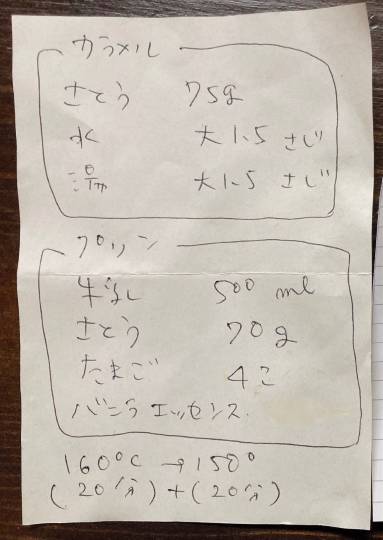 カラメル
さとう 75g
水 大1.5 さじ
湯 大1.5 さじ
プリン
牛乳 500 ml
さとう 70g
たまご 4コ
バニラエッセンス
160°C → 150°
(20分) + (20分)